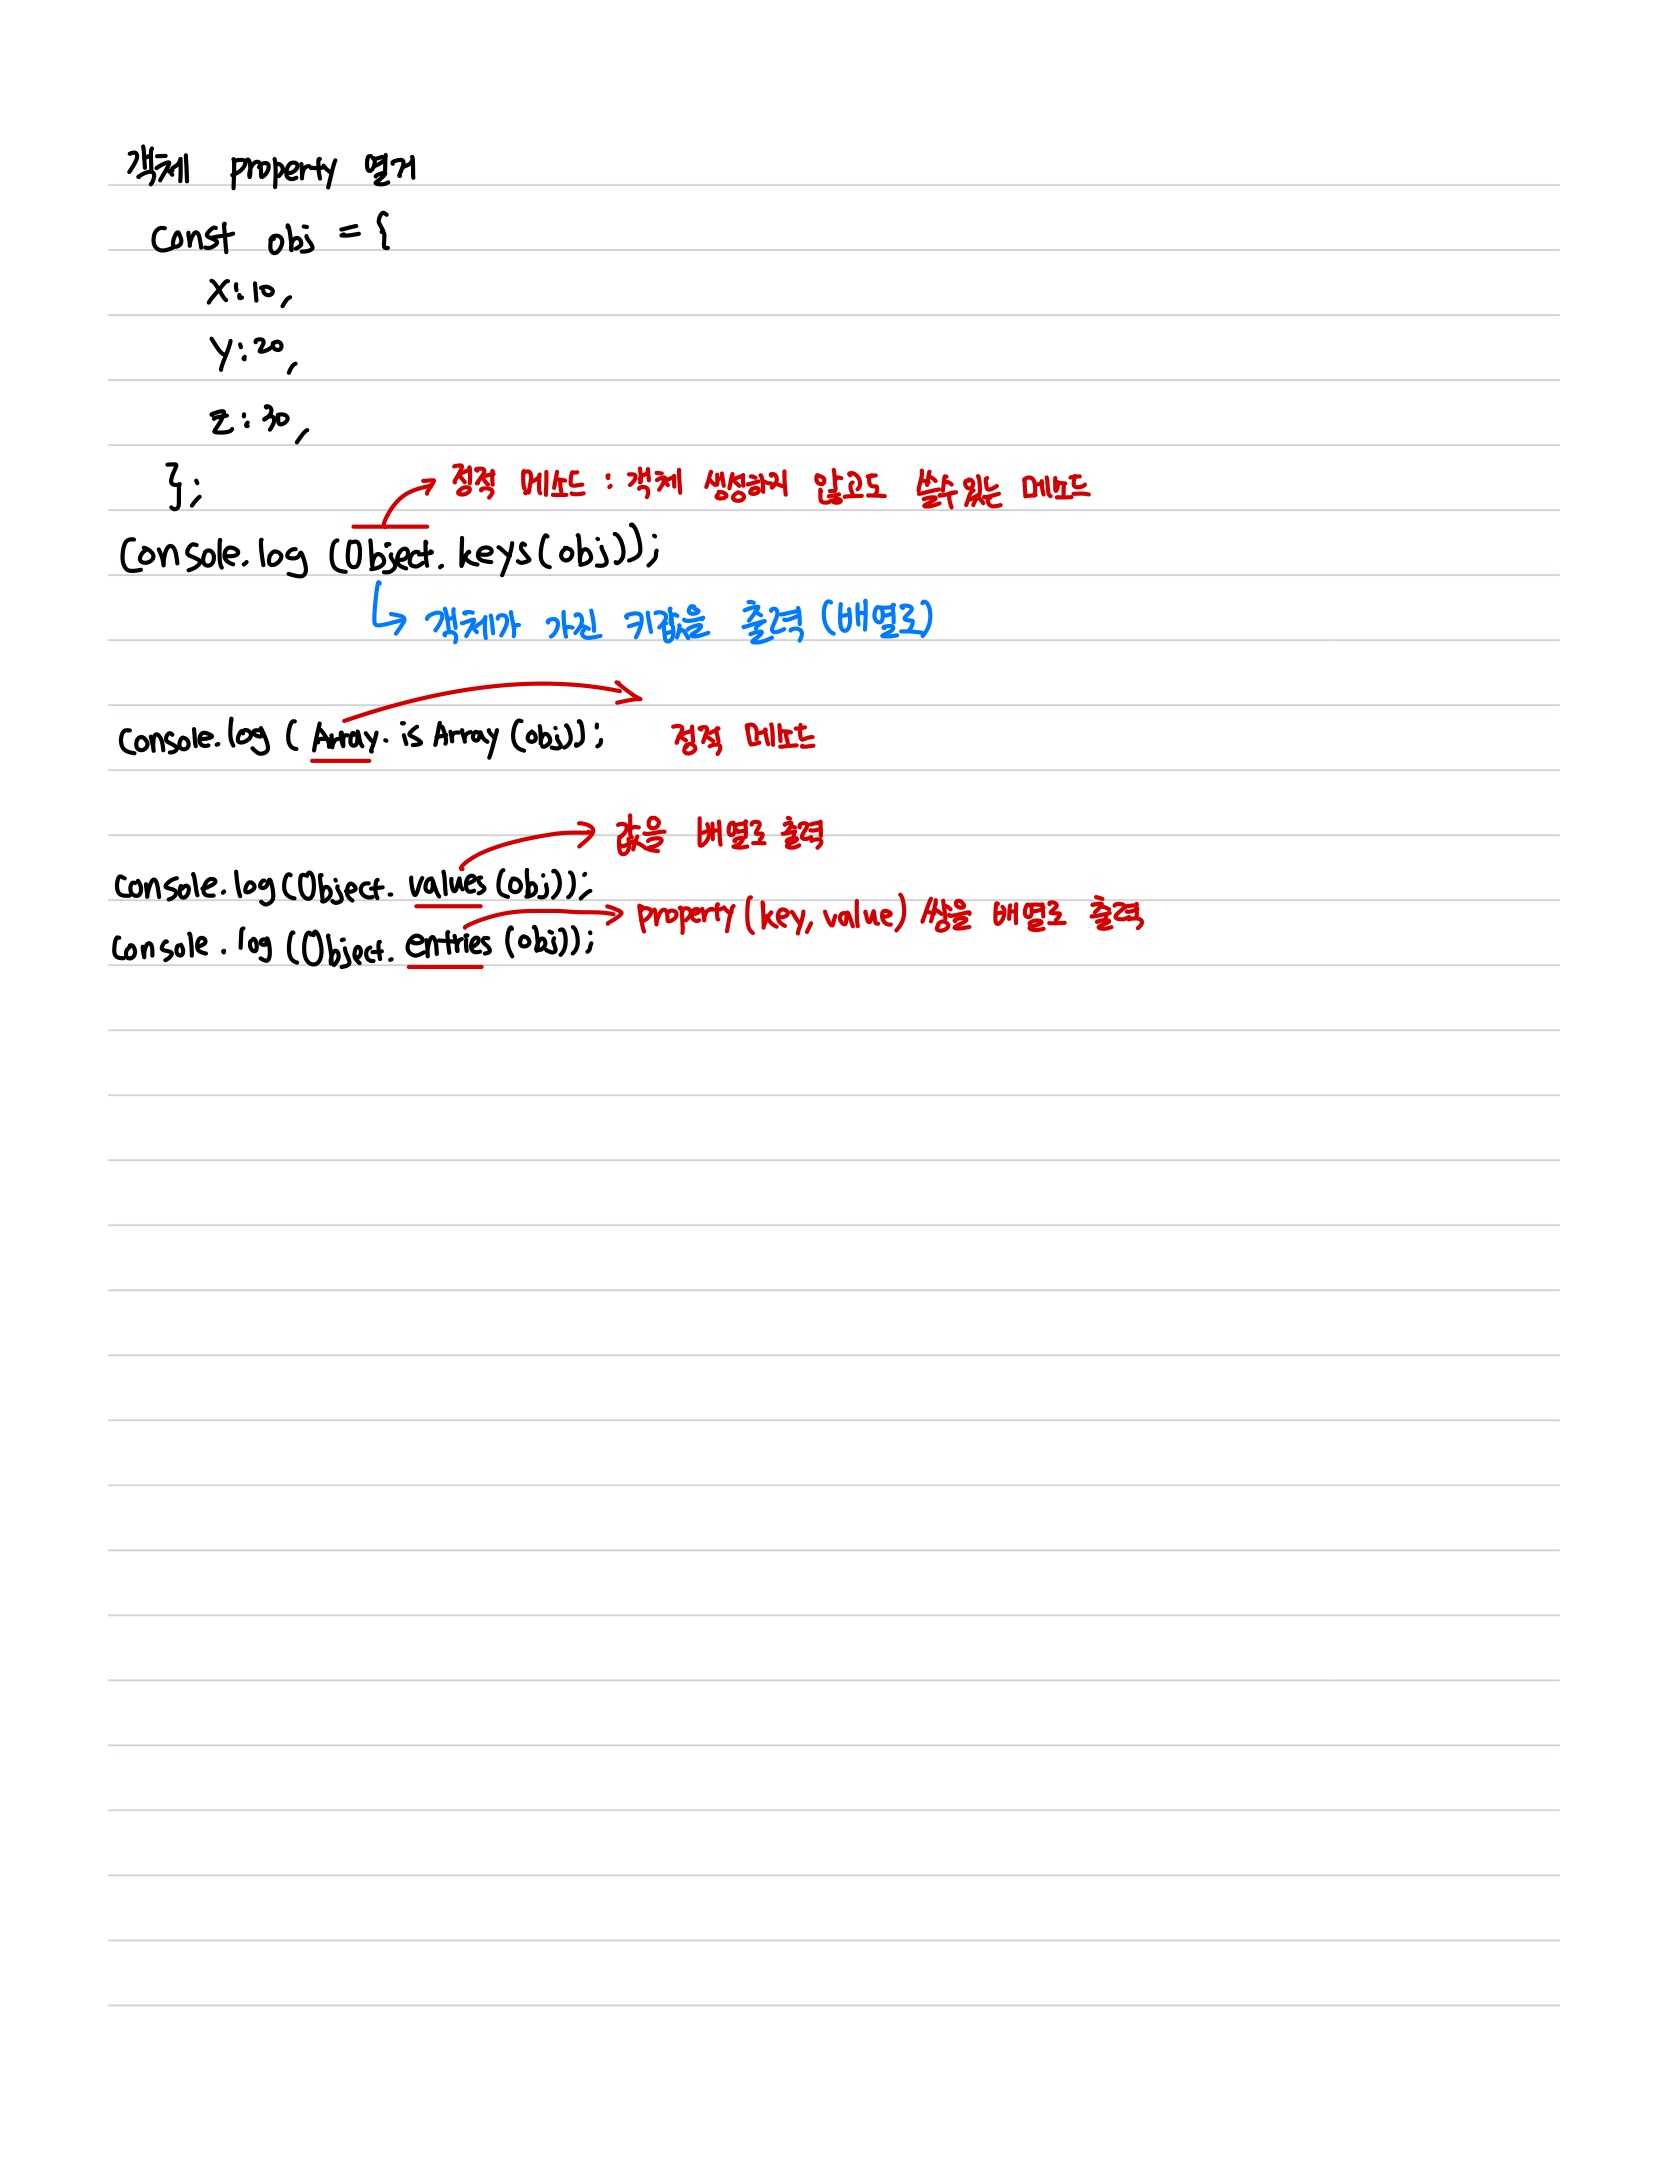 객체 property 열거
const obj = {
x:10,
y:20,
z:30,
};
정적 메소드 : 객체 생성하지 않고도 쓸수있는 메소드
console.log (Object.keys(obj));
객체가 가진 키값을 출력 (배열로)
console.log ( Array.isArray (obj)); 정적 메소드
값을 배열로 출력
console.log(Object.values (obj));
property (key, value) 쌍을 배열로 출력
console.log (Object.entries (obj));